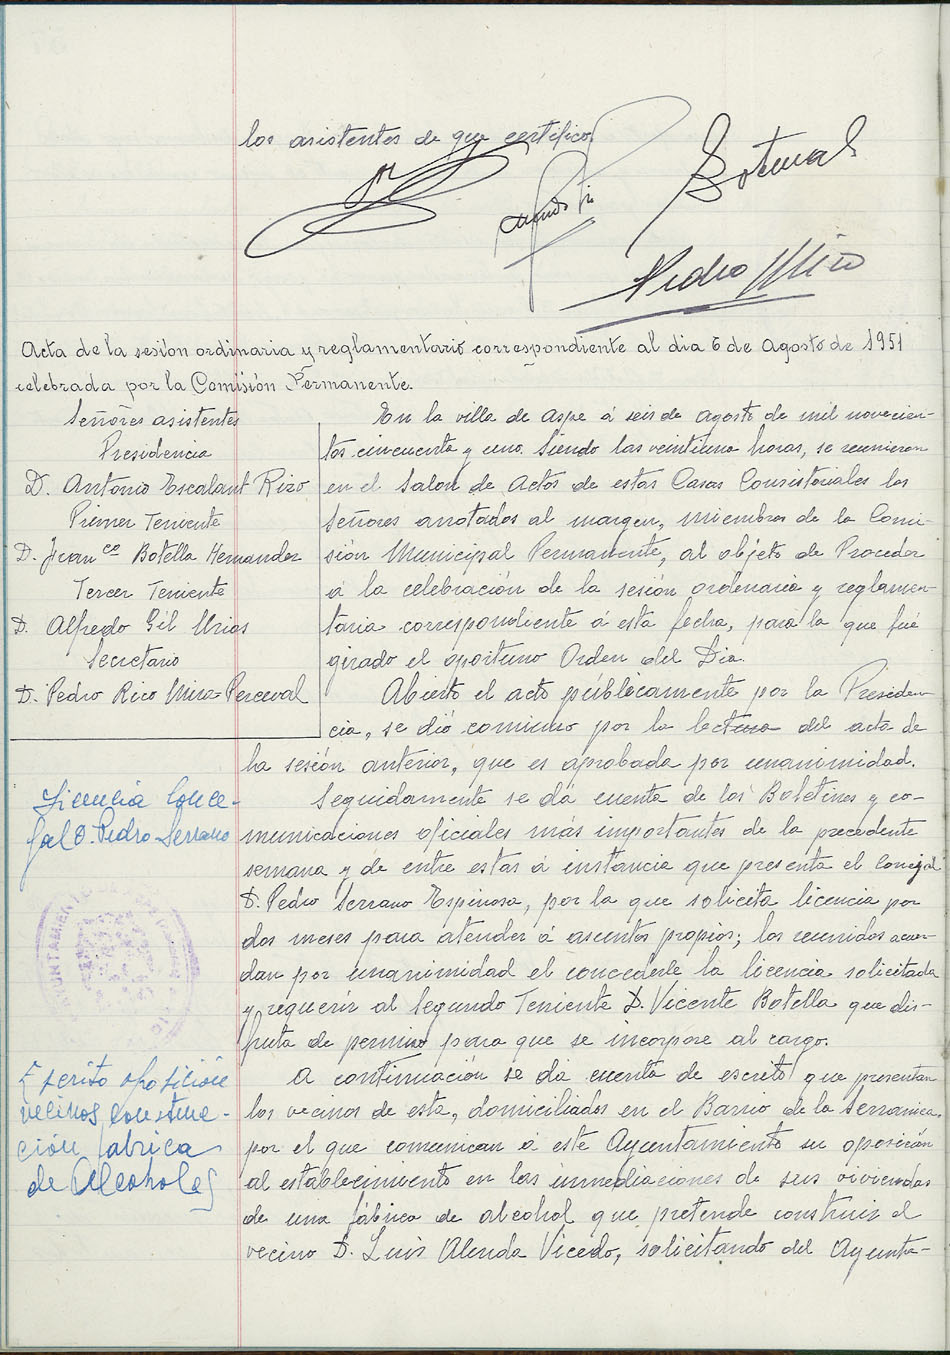 los asistentes de que certifico.
Pedro Miro
Acta de la sesión ordinaria y reglamentario correspondiente al dia 6 de Agosto de 1951
celebrada por la Comisión Permanente.
Señores asistentes
Presidencia
D. Antonio Escalant Rizo
Primer Teniente
D. Franco Botella Hernandez
Tercer Teniente
D. Alfredo Gil Urios
Secretario
D. Pedro Rico Mira-Perceval
En la villa de Aspe á seis de Agosto de mil novecien-
tos cincuenta y uno. Siendo las veintiuna horas, se reunieron
en el Salon de Actos de estas Casas Consistoriales los
Señores anotados al margen, miembros de la Comi-
sión Municipal Permanente, al objeto de Proceder
á la celebración de la sesión ordenaria y reglamen-
taria correspondiente á esta fecha, para la que fué
girado el oportuno Orden del Dia.
Abierto el acto públicamente por la Presiden-
cia, se dió comienzo por la lectura del acta de
ha sesión anterior, que es aprobada por unanimidad.
Licencia Conce-
jal D. Pedro Serrano
Seguidamente se dá cuenta de los Boletines y co-
municaciones oficiales más importantes de la precedente
semana y de entre estas á instancia que presenta el Concejal
D. Pedro Serrano Espinosa, por la que solicita licencia por
dos meses para atender á asuntos propios; los reunidos acuer-
dan por unanimidad el concederle la licencia solicitada
y requerir al Segundo Teniente D. Vicente Botella que dis-
fruta de permiso para que se incorpore al cargo.
AYUNTAMIENTO DE
Escrito oposición
vecinos construc-
ción fabrica
de Alcoholes
A continuación se da cuenta de escrito que presentan
los vecinos de esta, domiciliados en el Barrio de la Serranica,
por el que comunican á este Ayuntamiento su oposición
al establecimiento en las inmediaciones de sus viviendas
de una fábrica de alcohol que pretende construir el
vecino D. Luis Alenda Vicedo, solicitando del Ayunta-